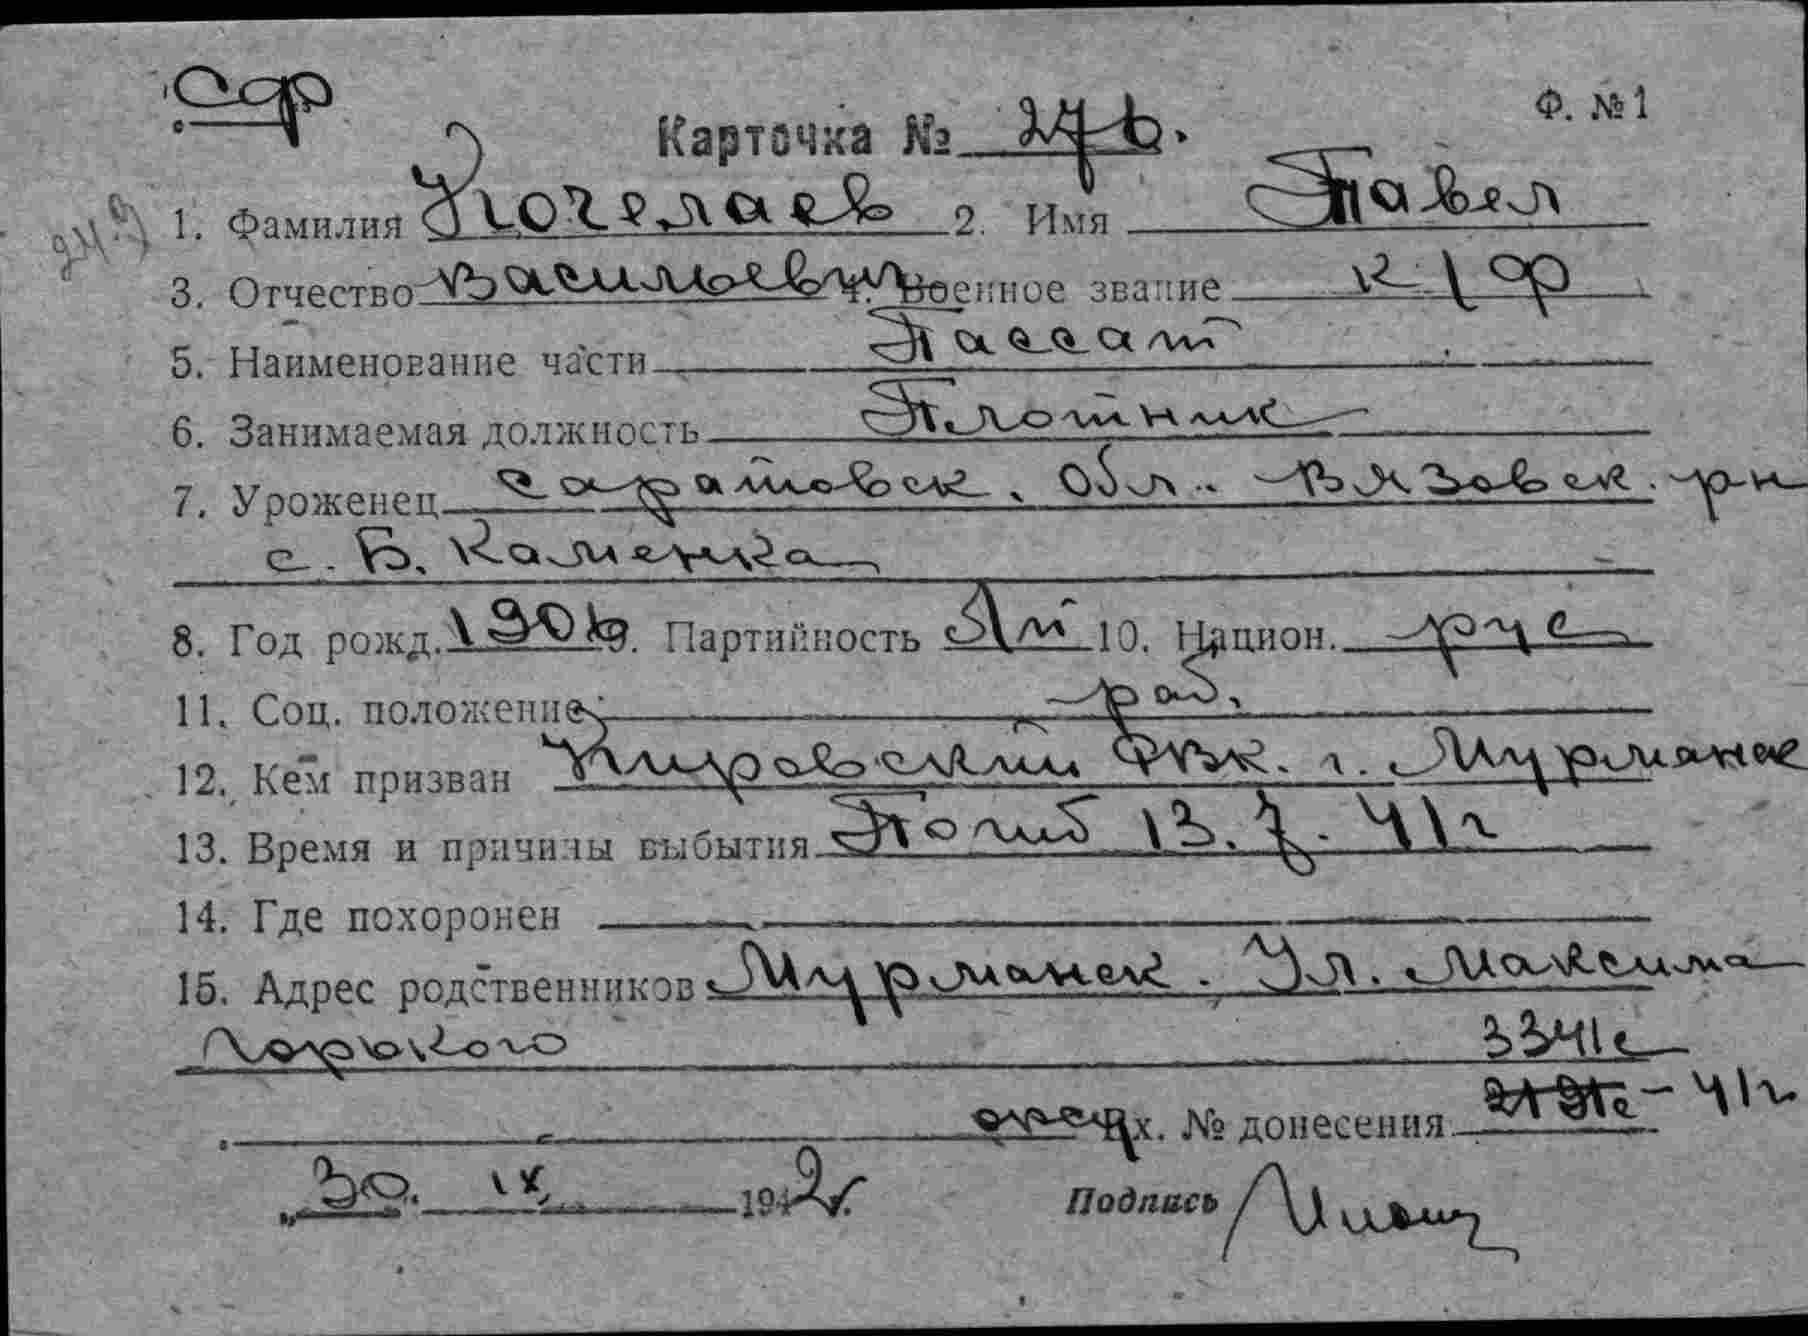 Сдр
Ф. №1
Карточка № 276.
1. Фамилия Кочелаев 2. Имя Павел
3. Отчество Васильевич 4. Военное звание к/ф
5. Наименование части Пассат
6. Занимаемая должность Плотник
7. Уроженец Саратовск. обл. Вязовск. р-н
с. Б. Каменка
8. Год рожд. 1906 9. Партийность б/п 10. Национ. рус
11. Соц. положение раб.
12. Кем призван Кировский РВК. г. Мурманск
13. Время и причины выбытия Погиб 13.7.41г
14. Где похоронен
15. Адрес родственников Мурманск. Ул. Максима
Горького 3341с
Вх. № донесения – 41г.
„30.“ IX 1942г.
Подпись